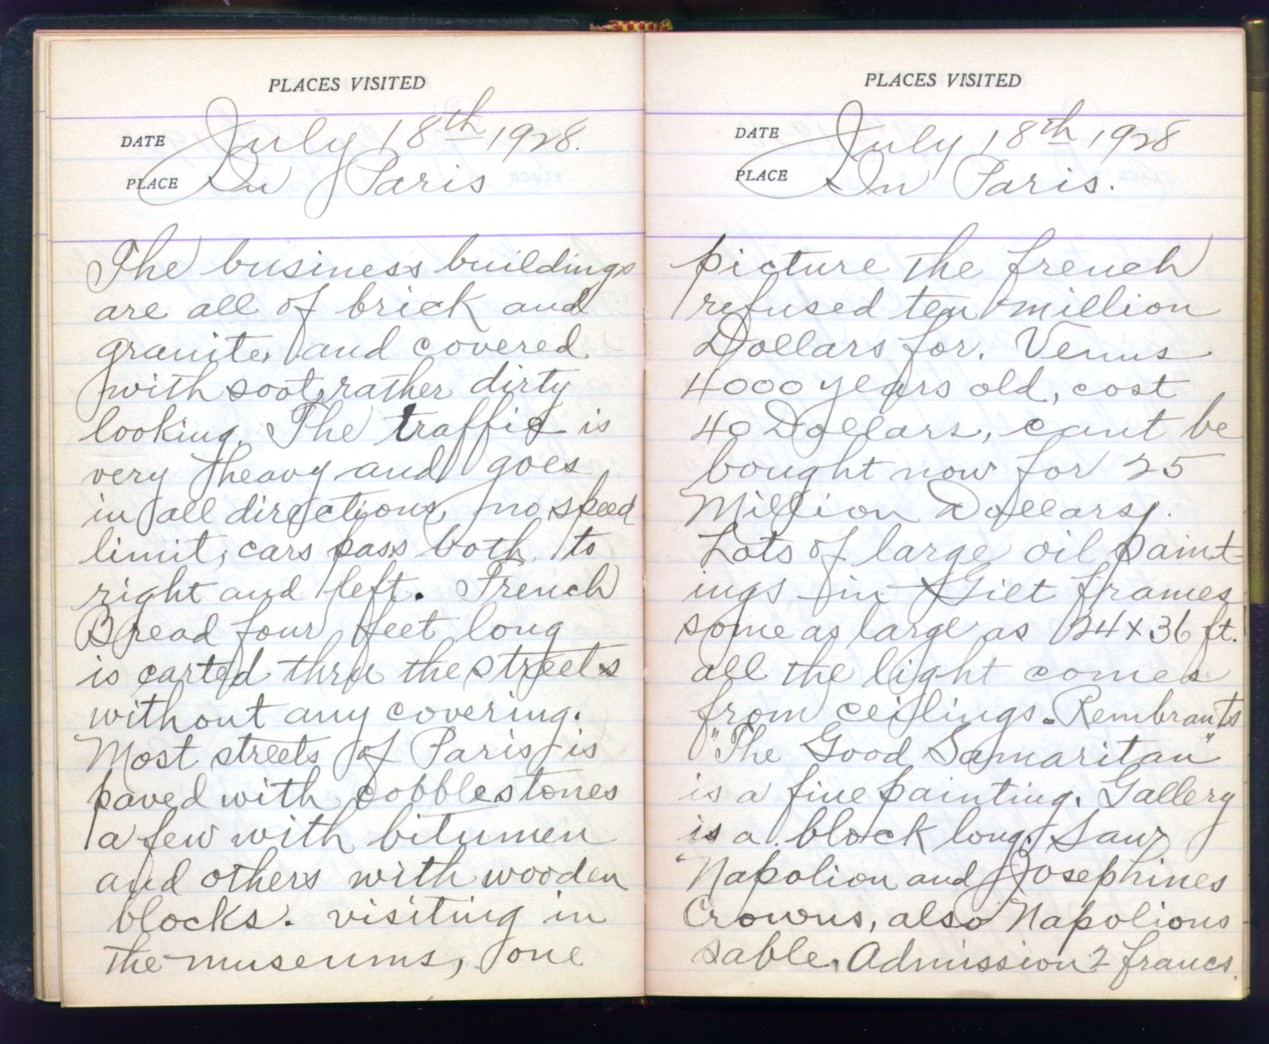 PLACES VISITED
DATE July 18th 1928.
PLACE In Paris
The business buildings
are all of brick and
granite, and covered
with soot, rather dirty
looking. The traffic is
very heavy and goes
in all directions, no speed
limit, cars pass both to
right and left. French
Bread four feet long
is carted thru the streets
without any covering.
Most streets of Paris is
paved with cobblestones
a few with bitumen
and others with wooden
blocks. visiting in
the museums, one
PLACES VISITED
DATE July 18th 1928
PLACE In Paris.
picture the french
refused ten million
Dollars for. Venus
4000 years old, cost
40 Dollars, cant be
bought now for 25
Million Dollars.
Lots of large oil paint-
ings in Gilt frames
some as large as 24 x 36 ft.
all the light comes
from ceilings. Rembrants
"The Good Samaritan"
is a fine painting. Gallery
is a block long. Saw
Napolion and Josephines
Crowns, also Napolions
sable. Admission 2 francs.